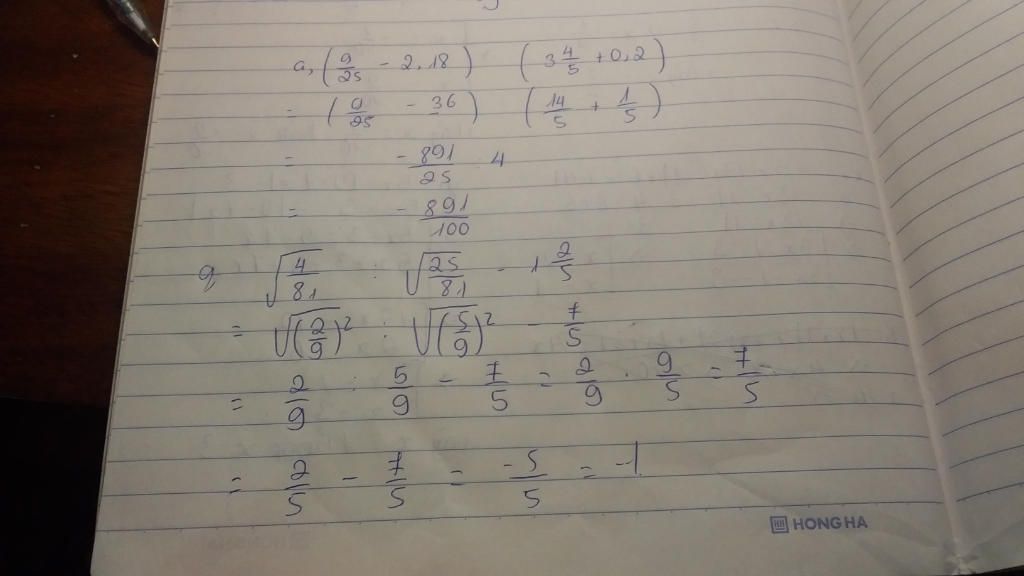 a, (9/25 - 2.18) (3 4/5 + 0,2)
= (9/25 - 36) (14/5 + 1/5)
= -891/25 4
= -891/100
√(4/81) : √(25/81) - 1 2/5
= √(2/9)² : √(5/9)² - 7/5
= 2/9 : 5/9 - 7/5 = 2/9 . 9/5 = 7/5
= 2/5 - 7/5 = -5/5 = -1
HH HONG HA